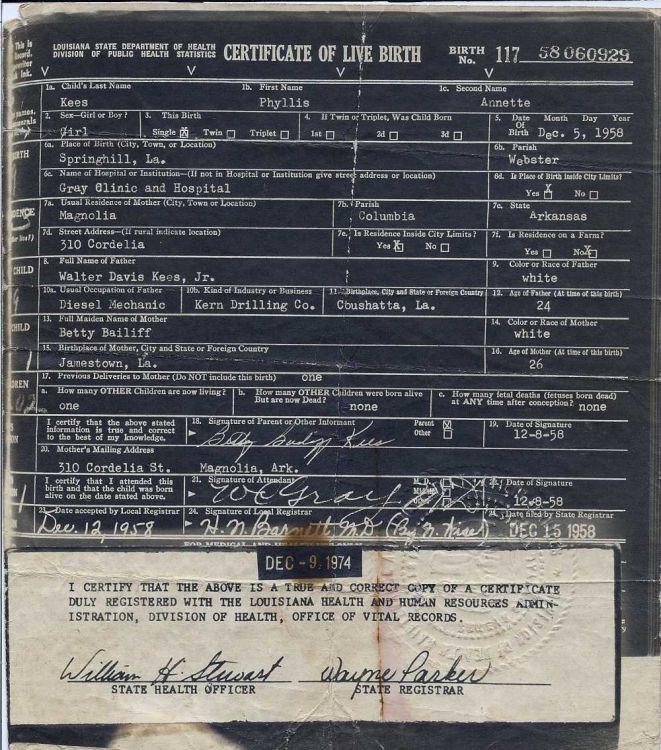 This is
LOUISIANA STATE DEPARTMENT OF HEALTH
DIVISION OF PUBLIC HEALTH STATISTICS
CERTIFICATE OF LIVE BIRTH
BIRTH No. 117 58 060929
ink.
1a. Child's Last Name 1b. First Name 1c. Second Name
Kees Phyllis Annette
2. Sex—Girl or Boy? 3. This Birth 4. If Twin or Triplet, Was Child Born 5. Date Of Birth Month Day Year
Girl Single X Twin Triplet 1st 2d 3d Dec. 5, 1958
6a. Place of Birth (City, Town, or Location) 6b. Parish
Springhill, La. Webster
6c. Name of Hospital or Institution—(If not in Hospital or Institution give street address or location) 6d. Is Place of Birth inside City Limits?
Gray Clinic and Hospital Yes X No
7a. Usual Residence of Mother (City, Town or Location) 7b. Parish 7c. State
Magnolia Columbia Arkansas
7d. Street Address—(If rural indicate location) 7e. Is Residence Inside City Limits? 7f. Is Residence on a Farm?
310 Cordelia Yes X No Yes No X
CHILD
8. Full Name of Father 9. Color or Race of Father
Walter Davis Kees, Jr. white
10a. Usual Occupation of Father 10b. Kind of Industry or Business 11. Birthplace, City and State or Foreign Country 12. Age of Father (At time of this birth)
Diesel Mechanic Kern Drilling Co. Coushatta, La. 24
13. Full Maiden Name of Mother 14. Color or Race of Mother
Betty Bailiff white
15. Birthplace of Mother, City and State or Foreign Country 16. Age of Mother (At time of this birth)
Jamestown, La. 26
17. Previous Deliveries to Mother (Do NOT include this birth) one
a. How many OTHER Children are now living? b. How many OTHER Children were born alive But are now Dead? c. How many fetal deaths (fetuses born dead) at ANY time after conception?
one none none
I certify that the above stated information is true and correct to the best of my knowledge. 18. Signature of Parent or Other Informant Parent X Other 19. Date of Signature
Kees 12-8-58
20. Mother's Mailing Address
310 Cordelia St. Magnolia, Ark.
I certify that I attended this birth and that the child was born alive on the date stated above. 21. Signature of Attendant M.D. Date of Signature
W C Gray 12-8-58
23. Date accepted by Local Registrar 24. Signature of Local Registrar Date filed by State Registrar
Dec. 12, 1958 DEC 15 1958
DEC - 9. 1974
I CERTIFY THAT THE ABOVE IS A TRUE AND CORRECT COPY OF A CERTIFICATE
DULY REGISTERED WITH THE LOUISIANA HEALTH AND HUMAN RESOURCES ADMIN-
ISTRATION, DIVISION OF HEALTH, OFFICE OF VITAL RECORDS.
William H. Stewart Wayne Parker
STATE HEALTH OFFICER STATE REGISTRAR